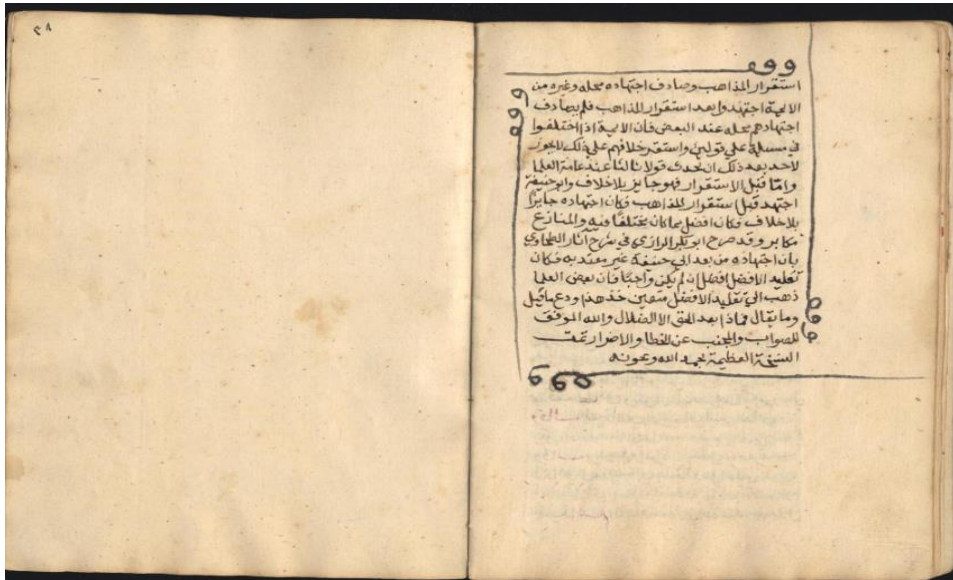 استقرار المذاهب وصادف اجتهاده محله وغيره من
الائمة اجتهدوا بعد استقرار المذاهب فلم يصادف
اجتهادهم محله عند البعض فان الائمة اذا اختلفوا
في مسئلة علي قولين واستقر خلافهم علي ذلك لا يجوز
لاحد بعد ذلك ان يحدث قولا ثالثا عند عامة العلما
واما قبل الاستقرار فهو جايز بلا خلاف وابو حنيفة
اجتهد قبل استقرار المذاهب فكان اجتهاده جايزا
بلا خلاف فكان افضل مما كان مختلفا فيه والمنازع
مكابر وقد صرح ابو بكر الرازي في شرح آثار الطحاوي
بان اجتهاده من بعد ابي حنيفة غير معتد به فكان
تقليد الافضل افضل ان لم يكن واجبا فان بعض العلما
ذهب الي تقليد الافضل متعين خذ هذا ودع ما قيل
وما يقال فماذا بعد الحق الا الضلال والله الموفق
للصواب والمجنب عن الخطا والاضرار تمت
النسخة العظيمة بحمد الله وعونه